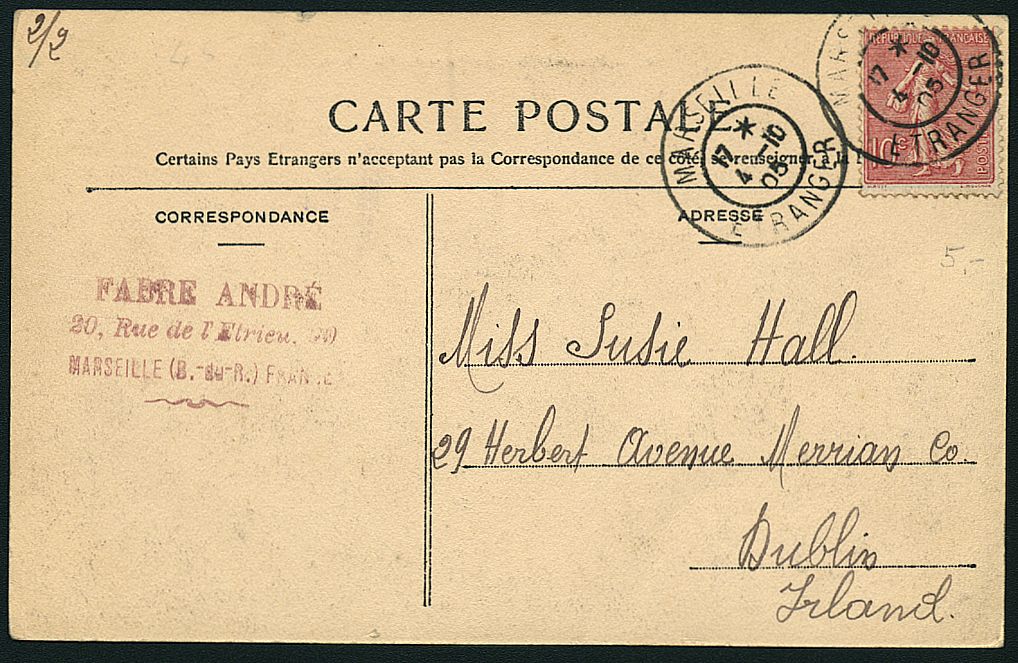 2/2
CARTE POSTALE
Certains Pays Etrangers n'acceptant pas la Correspondance de ce côté, se renseigner à la
CORRESPONDANCE
ADRESSE
MARSEILLE
17 * 4 -10 05
ETRANGER
MARSEILLE
17 * 4 -10 05
ETRANGER
REPUBLIQUE FRANÇAISE
10c
POSTES
5,-
FABRE ANDRÉ
20, Rue de l'Etrieu, 20
MARSEILLE (B.-du-R.) FRANCE
Miss Susie Hall.
29 Herbert Avenue Merrian Co.
Dublin
Irland.